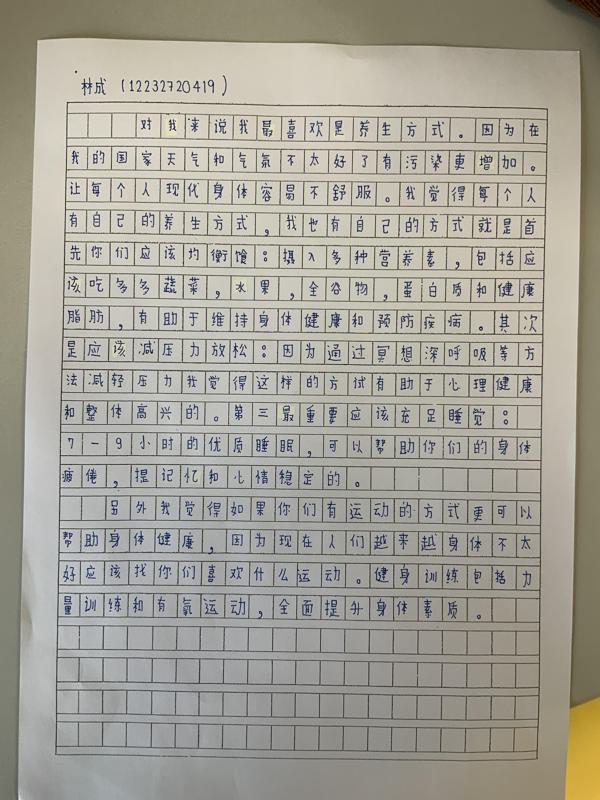 林成（12232720419）
对我来说我最喜欢是养生方式。因为在
我的国家天气和气氛不太好了有污染更增加。
让每个人现代身体容易不舒服。我觉得每个人
有自己的养生方式，我也有自己的方式就是首
先你们应该均衡馋：摄入多种营养素，包括应
该吃多多蔬菜，水果，全谷物，蛋白质和健康
脂肪，有助于维持身体健康和预防疾病。其次
是应该减压力放松：因为通过冥想深呼吸等方
法减轻压力我觉得这样的方试有助于心理健康
和整体高兴的。第三最重要应该充足睡觉：
7-9小时的优质睡眠，可以帮助你们的身体
疲倦，提记忆和心情稳定的。
另外我觉得如果你们有运动的方式更可以
帮助身体健康，因为现在人们越来越身体不太
好应该找你们喜欢什么运动。健身训练包括力
量训练和有氧运动，全面提升身体素质。